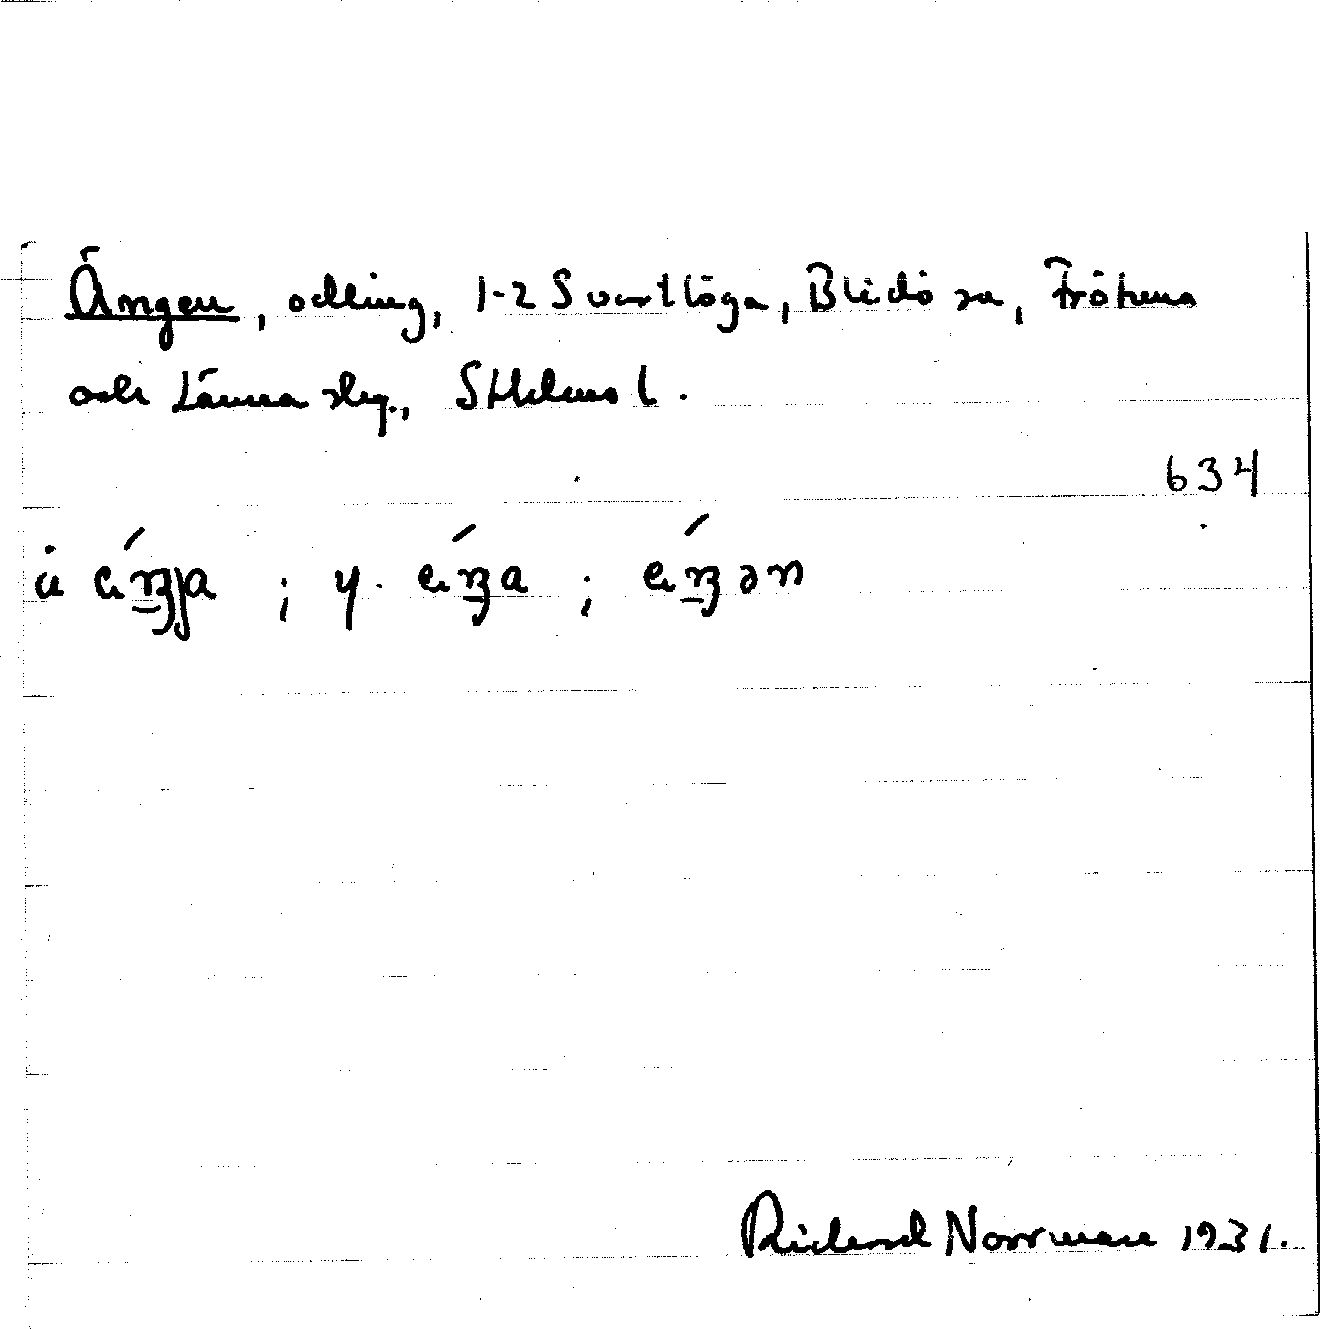 Ängen, odling, 1-2 Svartlöga, Blidö sn, Frötuna
och Länna slg., Sthlms l.
634
Richard Norrman 1931.